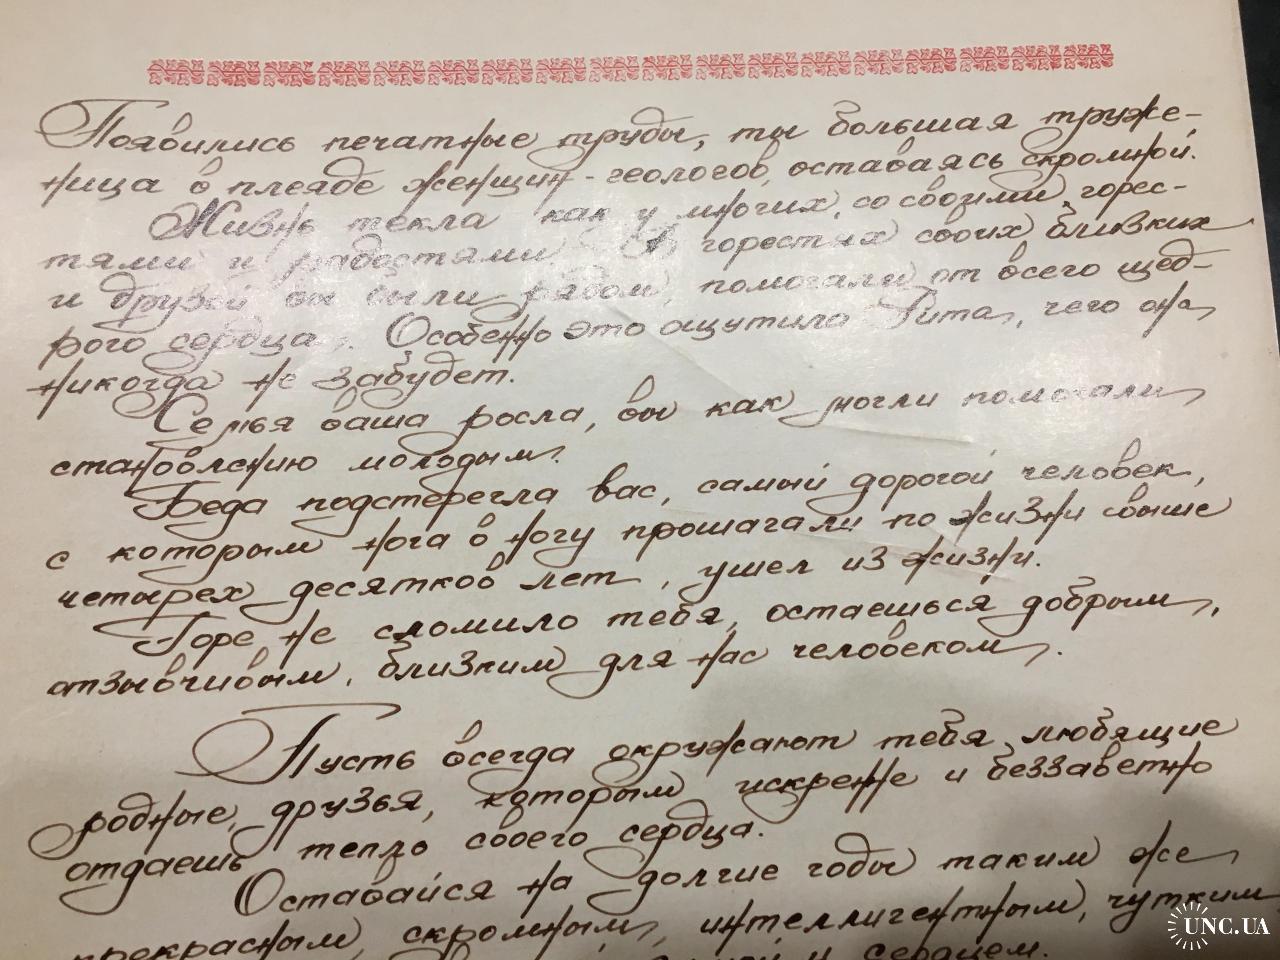 Появились печатные труды, ты большая труже-
ница в плеяде женщин-геологов, оставаясь скромной.
Жизнь текла как у многих, со своими горес-
тями и радостями. В горестях своих близких
и друзей вы были рядом, помогали от всего щед-
рого сердца. Особенно это ощутила Рита, чего она
никогда не забудет.
Семья ваша росла, вы как могли помогали
становлению молодым.
Беда подстерегла вас, самый дорогой человек,
с которым нога в ногу прошагали по жизни свыше
четырех десятков лет, ушел из жизни.
Горе не сломило тебя, остаешься добрым,
отзывчивым, близким для нас человеком.
Пусть всегда окружают тебя любящие
родные, друзья, которым искренне и беззаветно
отдаешь тепло своего сердца.
Оставайся на долгие годы таким же
прекрасным, скромным, интеллигентным, чутким
и сердцем.
UNC.UA